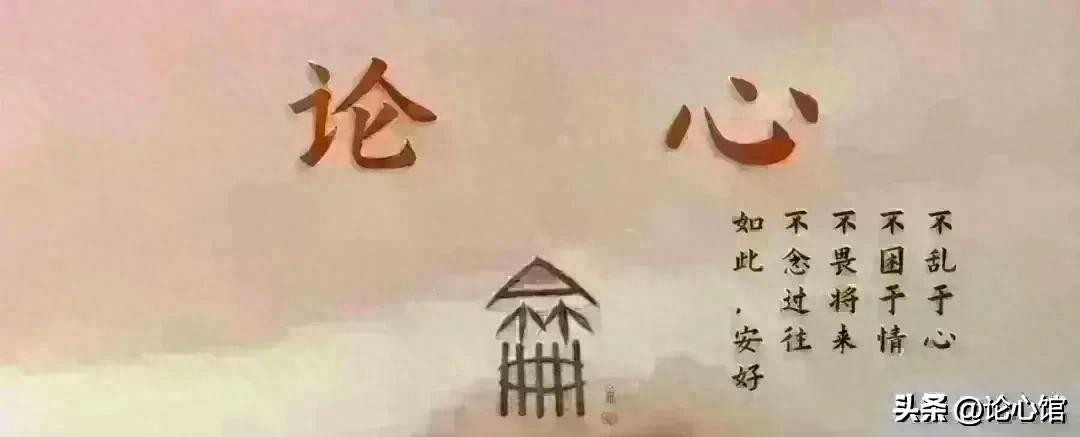 论心
不乱于心
不困于情
不畏将来
不念过往
如此，安好
头条 @论心馆